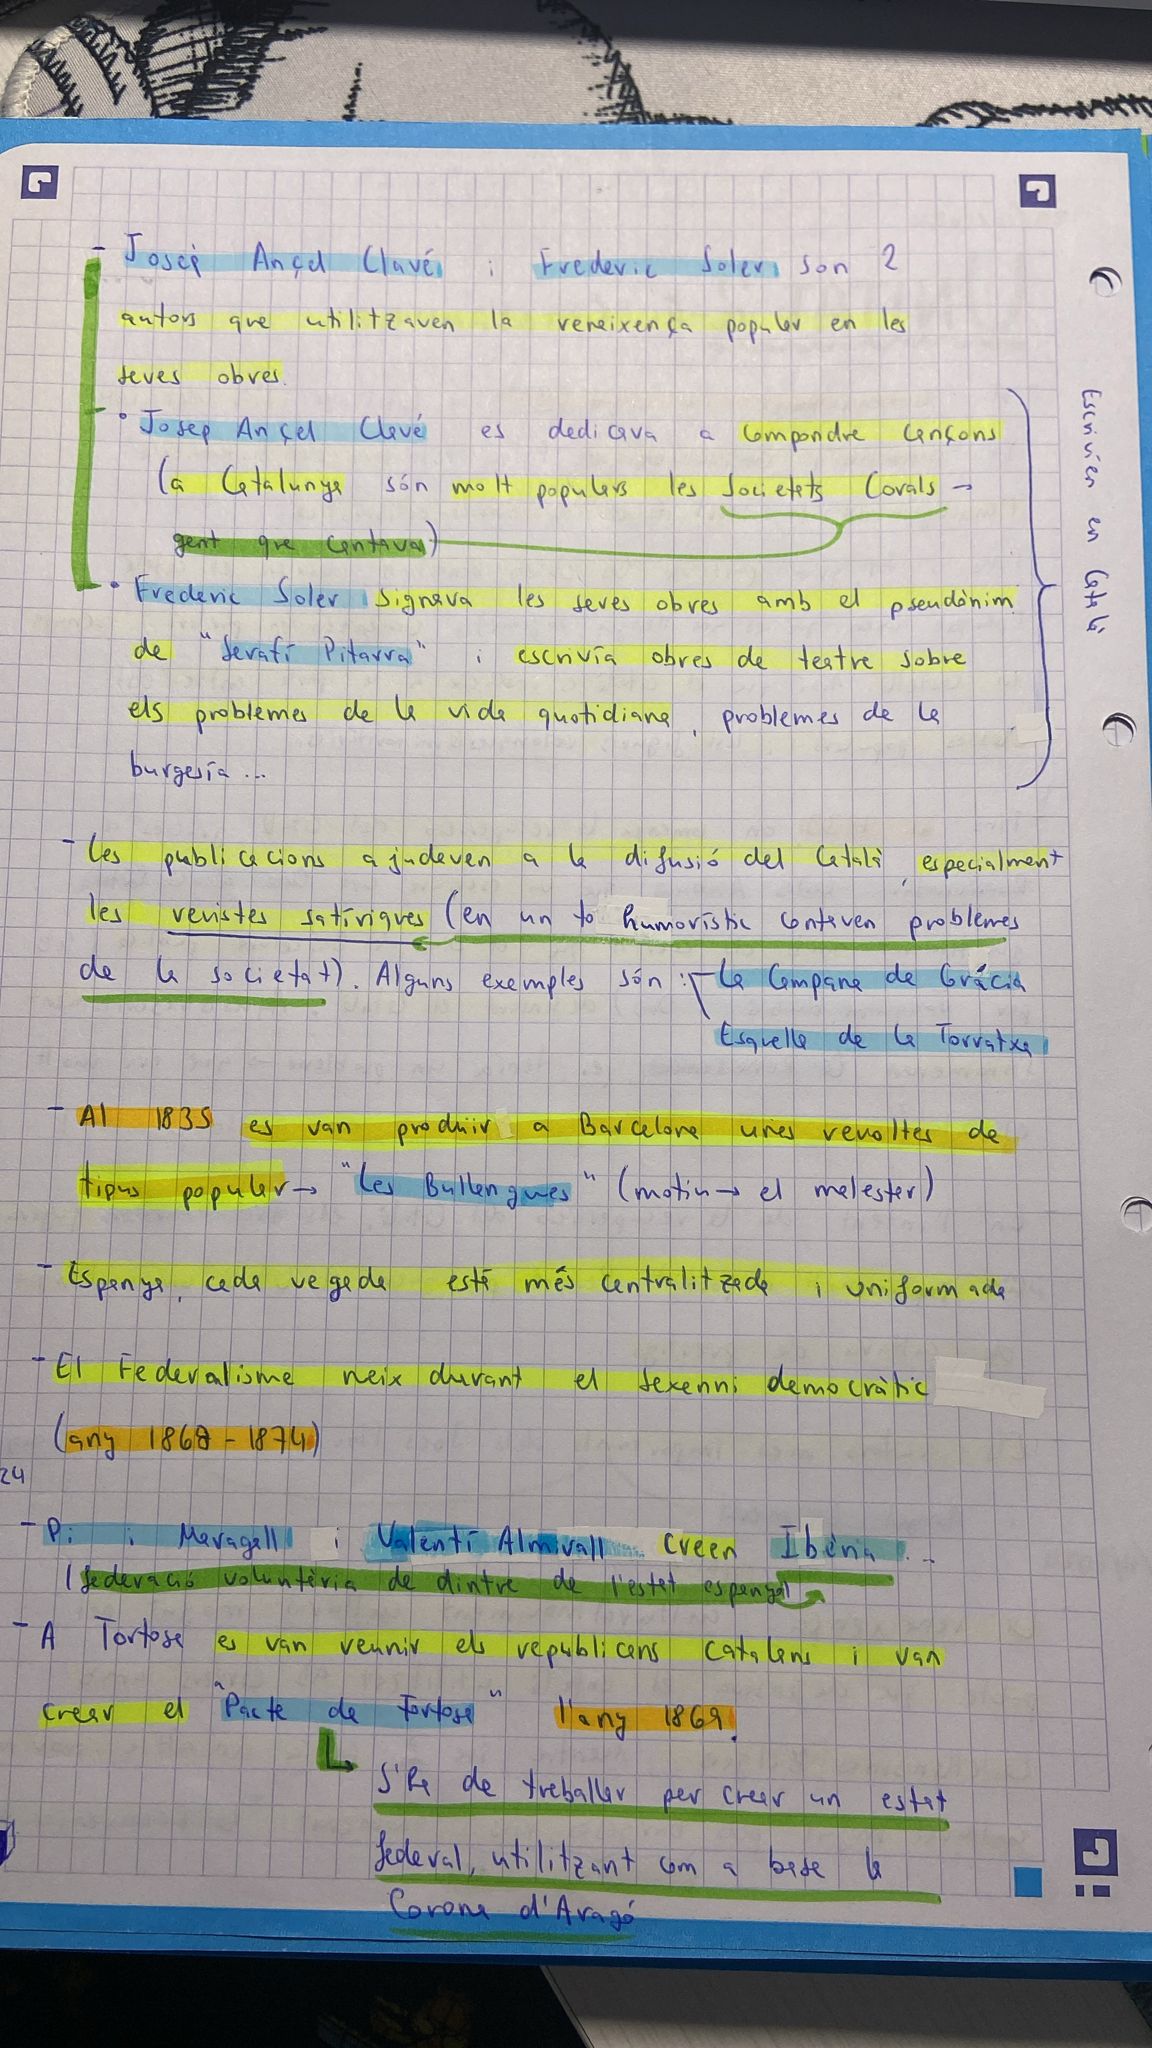 - Josep Ançel Clavé i Frederic Soler son 2
autors que utilitzaven la reneixença popular en les
seves obres.
• Josep Ançel Clavé es dedicava a compondre cançons
(a Catalunya són molt populars les Societats Corals →
gent que cantava)
• Frederic Soler signava les seves obres amb el pseudònim
de "Serafí Pitarra" i escrivía obres de teatre sobre
els problemes de la vida quotidiana, problemes de la
burgesía...
Escrivien en Català
- Les publicacions ajudaven a la difusió del Català, especialment
les revistes satíriques (en un to humorístic contaven problemes
de la societat). Alguns exemples són: La Campana de Gràcia
Esquella de la Torratxa
- Al 1835 es van produir a Barcelona unes revoltes de
tipus popular → "Les Bullengues" (motiu → el malestar)
- Espanya, cada vegada està més centralitzada i uniformada
- El Federalisme neix durant el sexenni democràtic
(any 1868 - 1874)
24
- Pi i Maragall i Valentí Almirall creen Ibèria...
(federació voluntària de dintre de l'estat espanyol)
- A Tortosa es van reunir els republicans catalans i van
crear el "Pacte de Tortosa" l'any 1869.
S'ha de treballar per crear un estat
federal, utilitzant com a base la
Corona d'Aragó